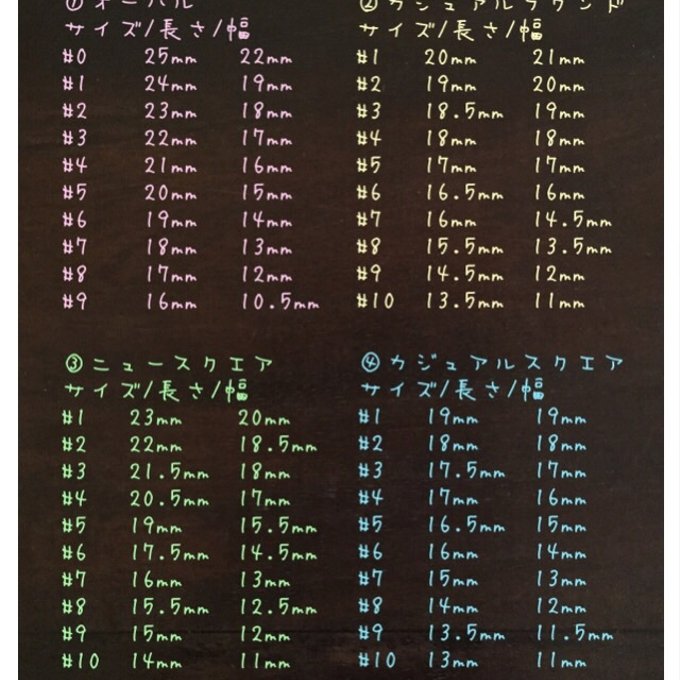 ①オーバル
サイズ/長さ/幅
#0 25mm 22mm
#1 24mm 19mm
#2 23mm 18mm
#3 22mm 17mm
#4 21mm 16mm
#5 20mm 15mm
#6 19mm 14mm
#7 18mm 13mm
#8 17mm 12mm
#9 16mm 10.5mm
②カジュアルラウンド
サイズ/長さ/幅
#1 20mm 21mm
#2 19mm 20mm
#3 18.5mm 19mm
#4 18mm 18mm
#5 17mm 17mm
#6 16.5mm 16mm
#7 16mm 14.5mm
#8 15.5mm 13.5mm
#9 14.5mm 12mm
#10 13.5mm 11mm
③ニュースクエア
サイズ/長さ/幅
#1 23mm 20mm
#2 22mm 18.5mm
#3 21.5mm 18mm
#4 20.5mm 17mm
#5 19mm 15.5mm
#6 17.5mm 14.5mm
#7 16mm 13mm
#8 15.5mm 12.5mm
#9 15mm 12mm
#10 14mm 11mm
④カジュアルスクエア
サイズ/長さ/幅
#1 19mm 19mm
#2 18mm 18mm
#3 17.5mm 17mm
#4 17mm 16mm
#5 16.5mm 15mm
#6 16mm 14mm
#7 15mm 13mm
#8 14mm 12mm
#9 13.5mm 11.5mm
#10 13mm 11mm